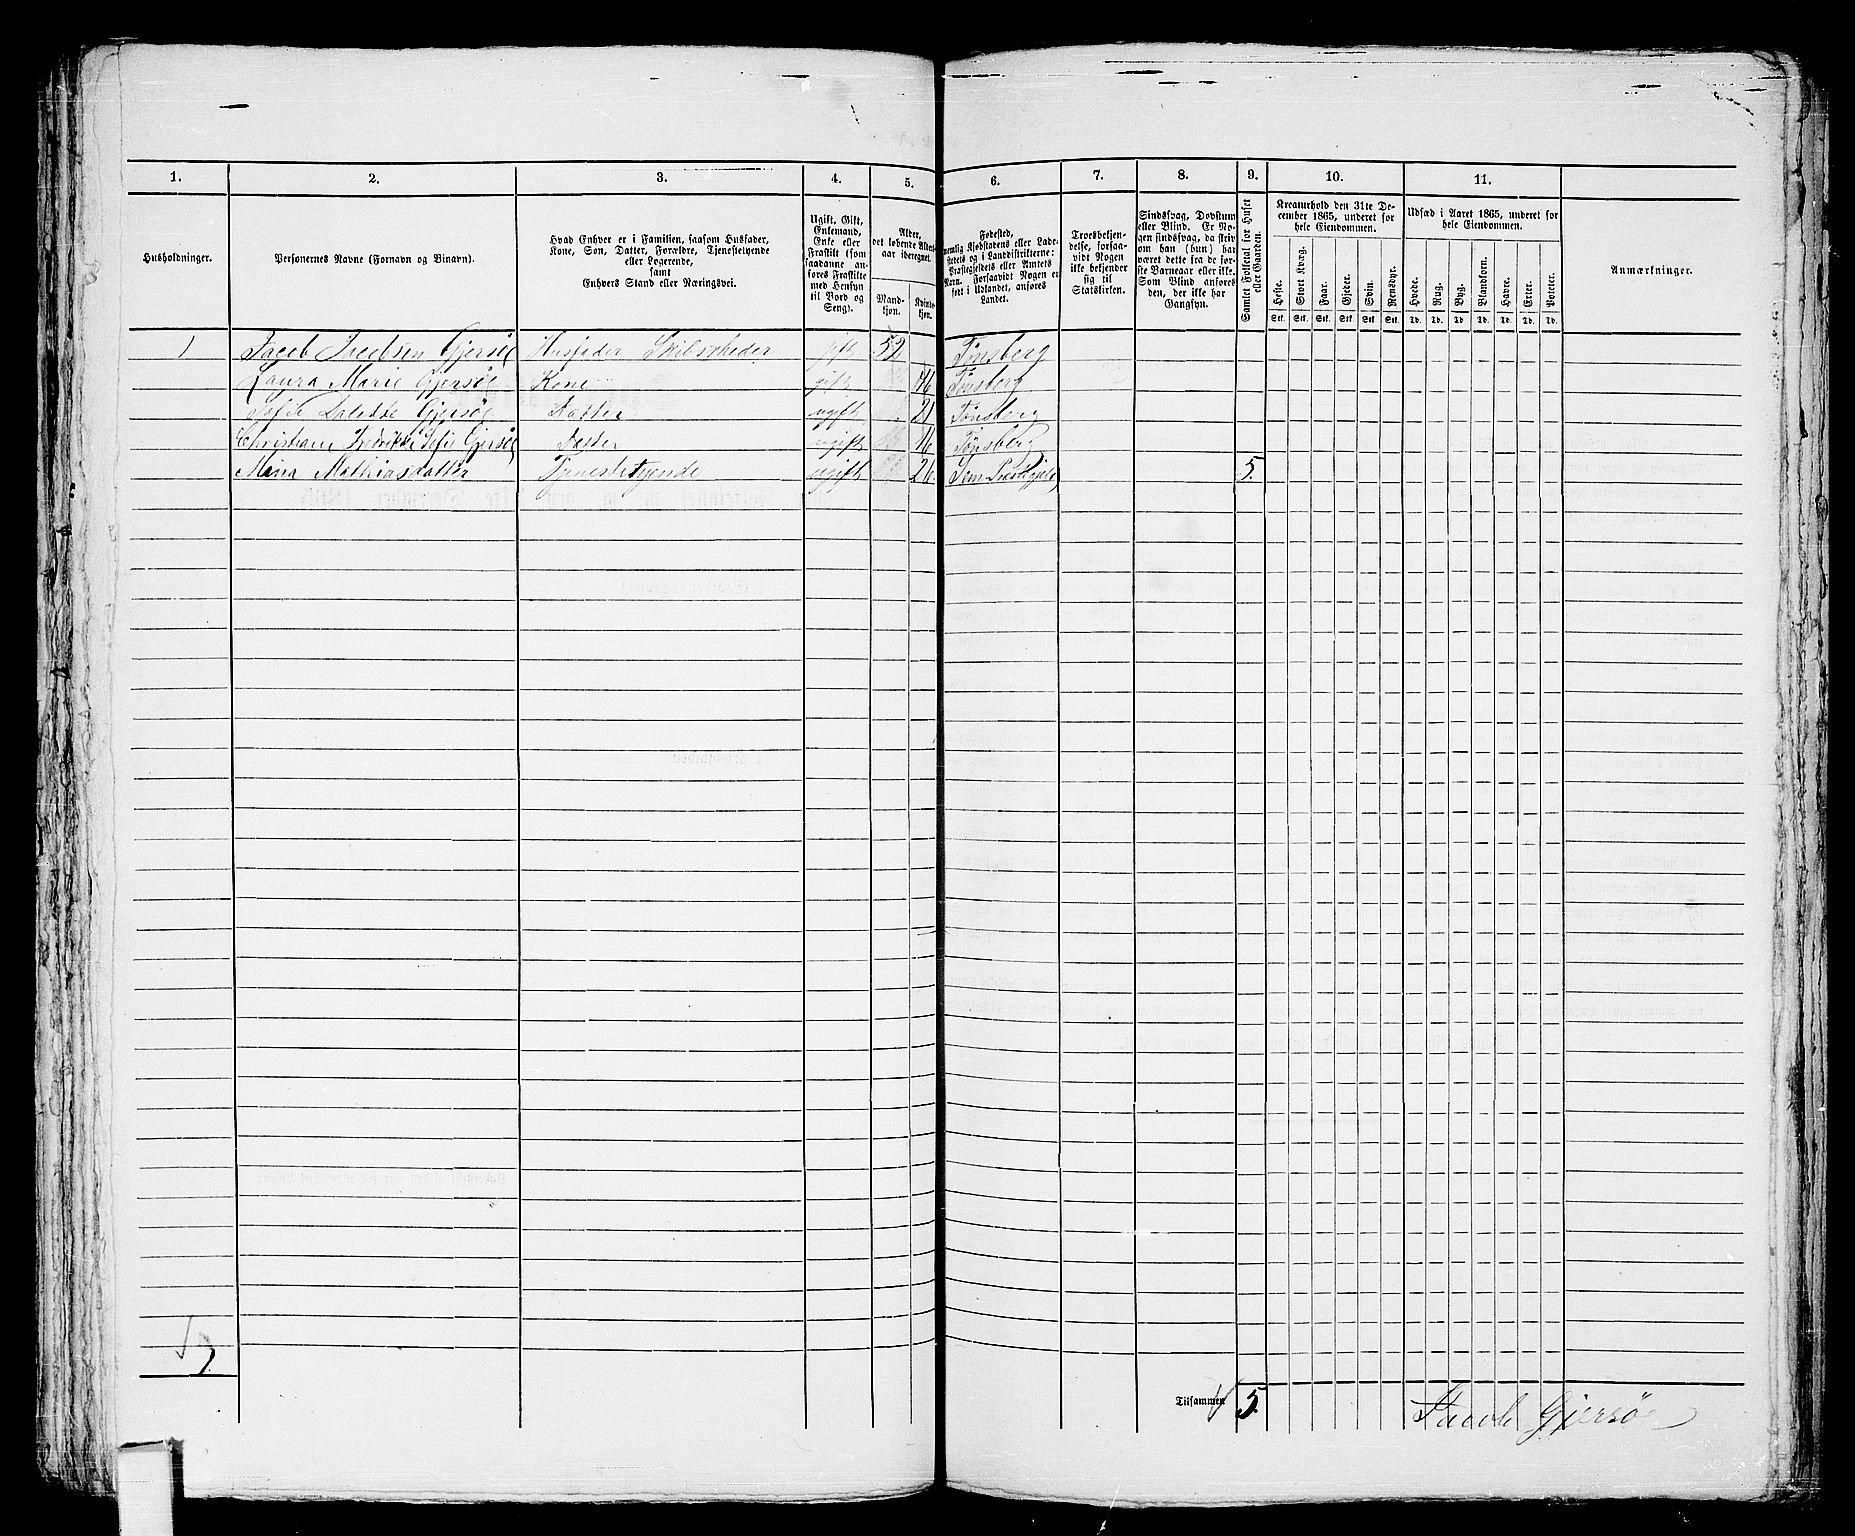 1. 2. 3. 4. 5. 6. 7. 8. 9. 10. 11.
Husholdninger.
Personernes Navne (Fornavn og Binavn).
Hvad Enhver er i Familien, saasom Husfader,
Kone, Søn, Datter, Forældre, Tjenestetyende
eller Logerende,
samt
Enhvers Stand eller Næringsvei.
Ugift, Gift,
Enkemand,
Enke eller
Fraskilt (som
saadanne an-
føres Fraskilte
med Hensyn
til Bord og
Seng).
Alder,
det løbende Alders-
aar iberegnet.
Mand-
kjøn.
Kvinde-
kjøn.
Fødested,
nemlig Kjøbstadens eller Lade-
stedets og i Landdistrikterne:
Præstegjeldets eller Amtets
Navn. Forsaavidt Nogen er
født i Udlandet, anføres
Landet.
Troesbekjen-
delse, forsaa-
vidt Nogen
ikke bekjender
sig til
Statskirken.
Sindssvag, Døvstum
eller Blind. Er No-
gen sindssvag, da skriv
om han (hun) har
været dette fra de før-
ste Barneaar eller ikke.
Som Blind anføres
den, der ikke har
Gangsyn.
Samlet Folketal for Huset
eller Gaarden.
Kreaturhold den 31te De-
cember 1865, underet for
hele Eiendommen.
Heste. Stort Kvæg. Faar. Gjeder. Svin. Rensdyr.
Stk. Stk. Stk. Stk. Stk. Stk.
Udsæd i Aaret 1865, underet for
hele Eiendommen.
Hvede. Rug. Byg. Blandkorn. Havre. Erter. Poteter.
Td. Td. Td. Td. Td. Td. Td.
Anmærkninger.
1 Jacob Jacobsen Gjersøe Husfader Skibsrheder gift 52 Tønsberg
Laura Marie Gjersøe Kone gift 46 Tønsberg
Gjersøe Datter ugift 21 Tønsberg
Christiane Fredrikke Sofie Gjersøe Datter ugift 16 Tønsberg
Mina Mathiasdatter Tjenestetyende ugift 26 Sem Præstegjeld 5.
Tilsammen 5.
Jacob Gjersøe